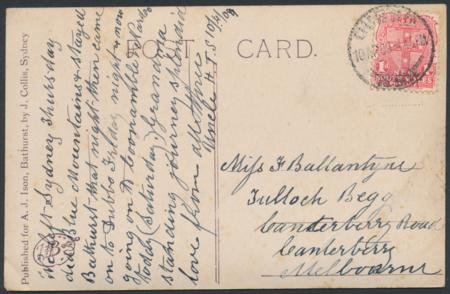 POST CARD.
Published for A. J. Ison, Bathurst, by J. Collis, Sydney
We left Sydney Thursday
did Blue Mountains & stayed
Bathurst that night then came
on to Dubbo Friday night & now
going on to Coonamble
today (Saturday) Grandma
standing journey splendid
love from all
Uncle H.T.S 10/4/09
Miss F Ballantyne
Tulloch Begg
Canterberry Road
Canterberry
Melbourne